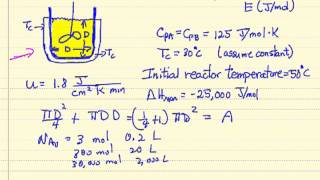 E (J/mol)
Tc
D
D
Tc
CPA = CPB = 125 J/mol·K
Tc = 30°C (assume constant)
U = 1.8 J / cm² K min
Initial reactor temperature = 50°C
ΔHrxn = -25,000 J/mol
πD²/4 + πDD = (1/4 + 1) πD² = A
NA0 = 3 mol 0.2 L
300 mol 20 L
30,000 mol 2,000 L